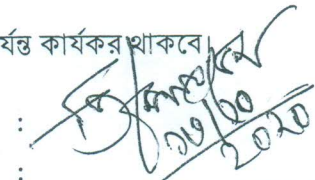 র্যন্ত কার্যকর থাকবে।
:
১৩/১০
২০২০
: